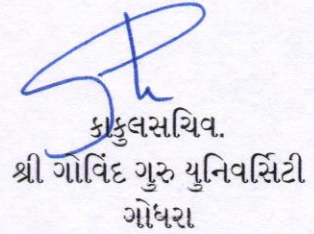 કાકુલસચિવ.
શ્રી ગોવિંદ ગુરુ યુનિવર્સિટી
ગોધરા